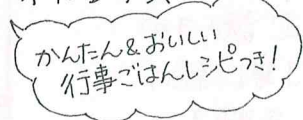 かんたん&おいしい
行事ごはんレシピつき!